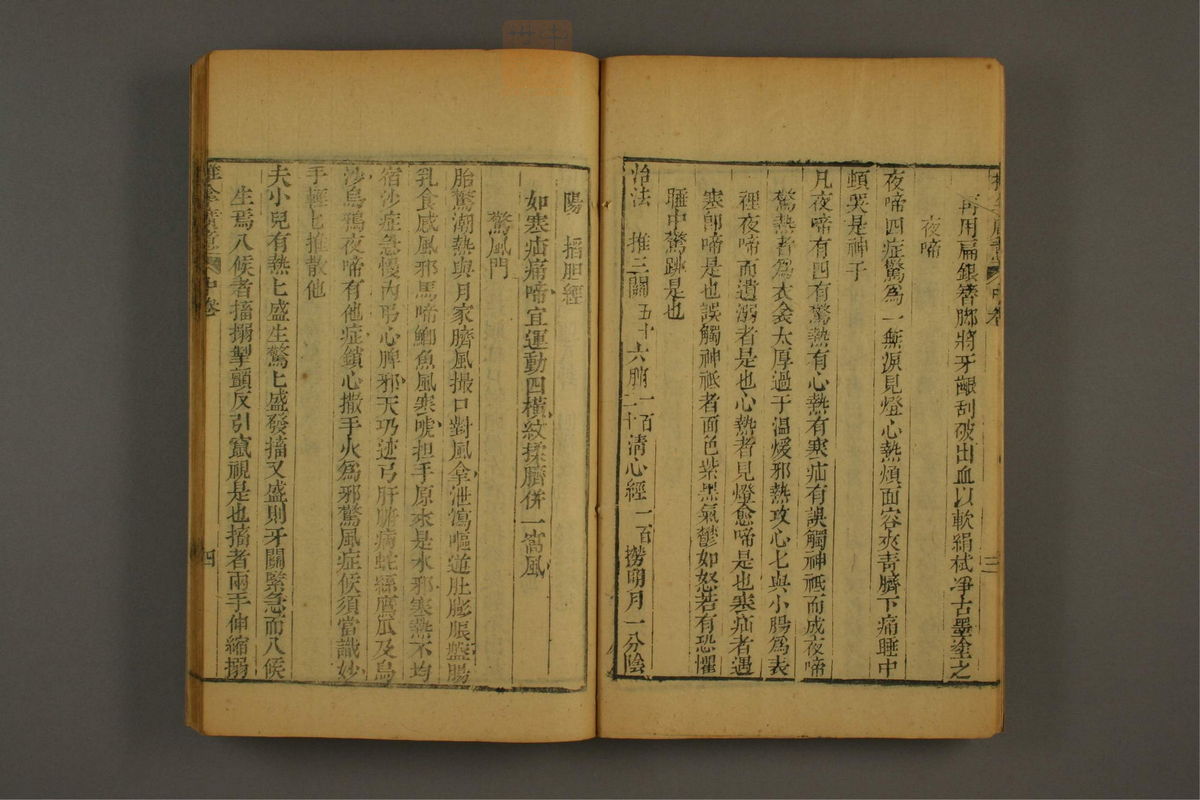 再用扁銀簪脚將牙齦刮破出血以軟絹拭净古墨塗之
夜啼
夜啼四症驚爲一無淚見燈心熱煩面容夾青臍下痛睡中
頓哭是神子
凡夜啼有四有驚熱有心熱有寒疝有誤觸神祇而成夜啼
驚熱者爲衣衾太厚過于温煖邪熱攻心匕與小腸爲表
裡夜啼而遺溺者是也心熱者見燈愈啼是也寒疝者遇
寒即啼是也誤觸神祇者面色紫黑氣鬱如怒若有恐懼
睡中驚跳是也
治法 推三關五十六腑一百二十清心經一百撈明月一分陰
三
陽 掐胆經
如寒疝痛啼宜運動四橫紋揉臍併一窩風
驚風門
胎驚潮熱與月家臍風撮口對風拿泄瀉嘔逆肚膨脹盤腸
乳食感風邪馬啼鯽魚風寒唬担手原來是水邪寒熱不均
宿沙症急慢內弔心脾邪天乃迹弓肝膽病蛇絲鷹爪及烏
沙烏鴉夜啼有他症鎖心撒手火爲邪驚風症候須當識妙
手輕匕推散他
夫小兒有熱匕盛生驚匕盛發搐又盛則牙關緊急而八候
生焉八候者搐搦掣顫反引竄視是也搐者兩手伸縮搦
中卷
四